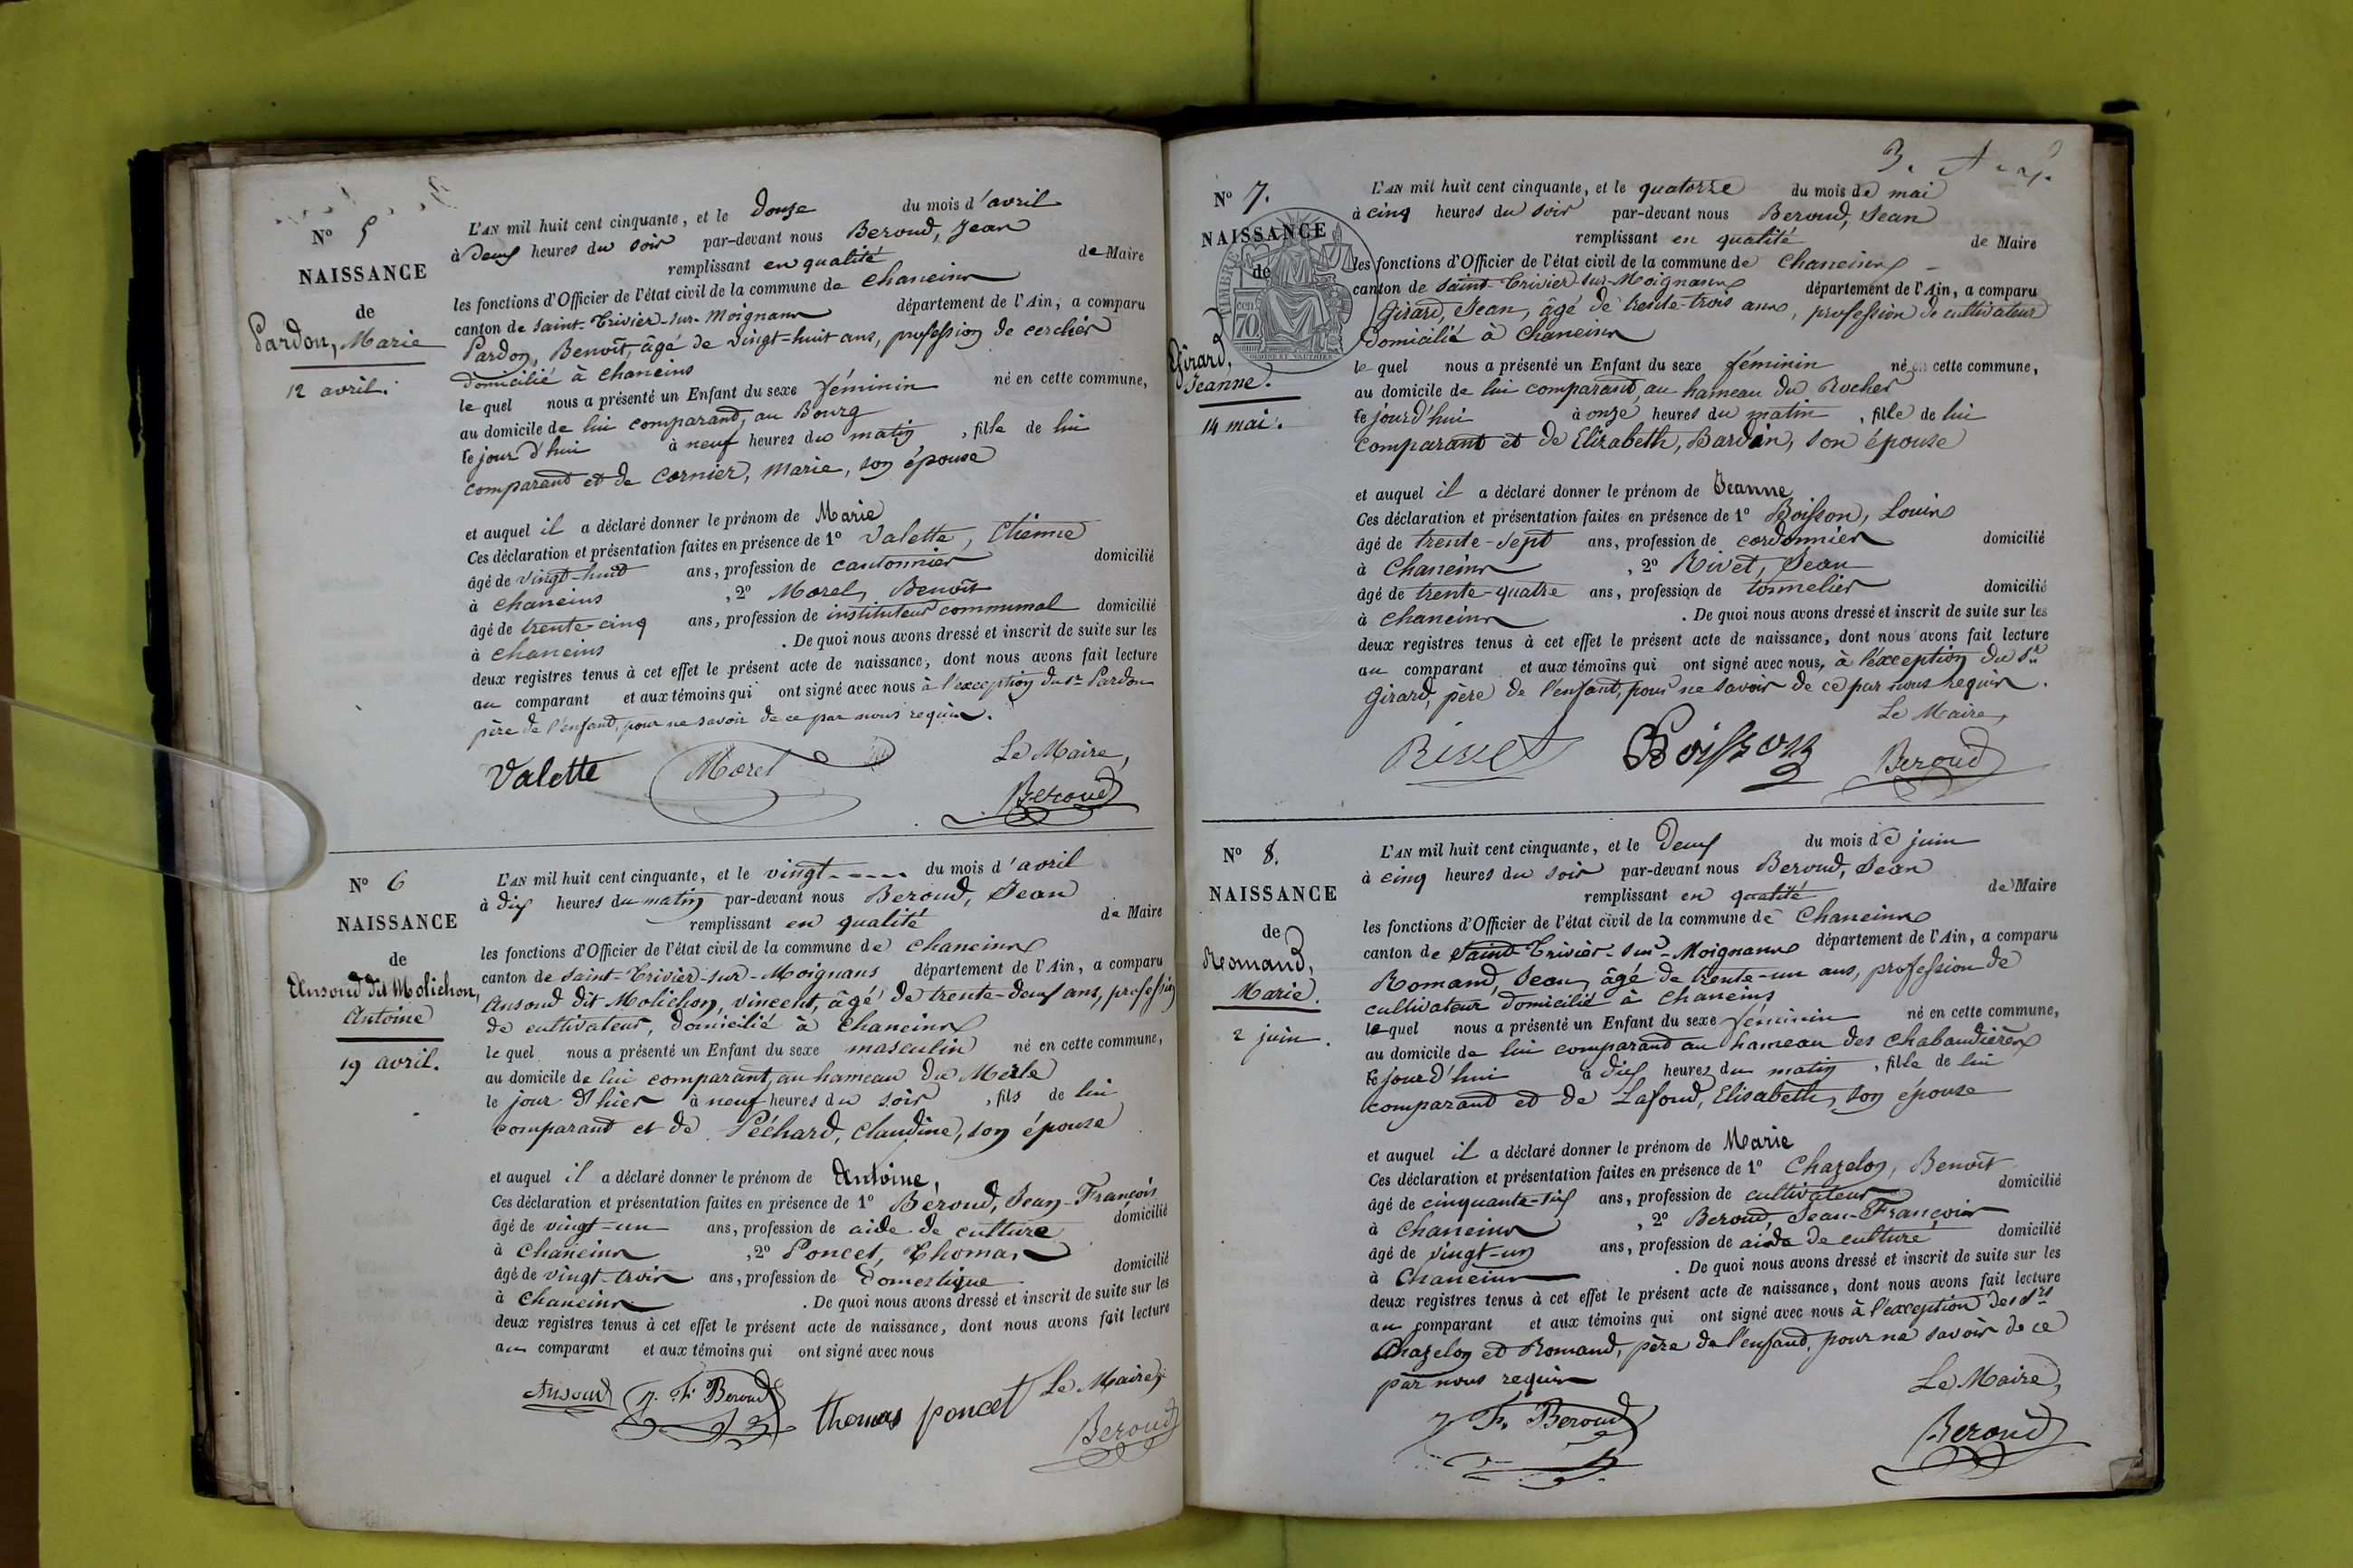 N° 5
NAISSANCE
de
Pardon, Marie
12 avril.
L'AN mil huit cent cinquante, et le douze du mois d'avril
à deux heures du soir par-devant nous Beroud, Jean
remplissant en qualité de Maire
les fonctions d'Officier de l'état civil de la commune de Chaneins
canton de saint-Trivier-sur-Moignans département de l'Ain, a comparu
Pardon, Benoît, âgé de vingt-huit ans, profession de cerclier
domicilié à Chaneins
le quel nous a présenté un Enfant du sexe féminin né en cette commune,
au domicile de lui comparant, au Bourg
le jour d'hui à neuf heures du matin, fille de lui
comparant et de Cornier, Marie, son épouse
et auquel il a déclaré donner le prénom de Marie
Ces déclaration et présentation faites en présence de 1° Valette, Etienne
âgé de vingt-huit ans, profession de cantonnier domicilié
à Chaneins, 2° Morel, Benoît
âgé de trente-cinq ans, profession de instituteur communal domicilié
à Chaneins. De quoi nous avons dressé et inscrit de suite sur les
deux registres tenus à cet effet le présent acte de naissance, dont nous avons fait lecture
au comparant et aux témoins qui ont signé avec nous à l'exception du sr Pardon
père de l'enfant, pour ne savoir de ce par nous requis.
Le Maire,
Valette Morel Beroud
N° 6
NAISSANCE
de
Ansoud dit Molichon,
Antoine
19 avril.
L'AN mil huit cent cinquante, et le vingt---- du mois d'avril
à dix heures du matin par-devant nous Beroud, Jean
remplissant en qualité de Maire
les fonctions d'Officier de l'état civil de la commune de Chaneins
canton de saint-Trivier-sur-Moignans département de l'Ain, a comparu
Ansoud dit Molichon, vincent, âgé de trente-deux ans, profession
de cultivateur, domicilié à Chaneins
le quel nous a présenté un Enfant du sexe masculin né en cette commune,
au domicile de lui comparant, au hameau du Merle
le jour d'hier à neuf heures du soir, fils de lui
comparant et de Péchard, Claudine, son épouse
et auquel il a déclaré donner le prénom de Antoine,
Ces déclaration et présentation faites en présence de 1° Beroud, Jean-François
âgé de vingt-un ans, profession de aide de culture domicilié
à Chaneins, 2° Poncet, Thomas
âgé de vingt-trois ans, profession de domestique domicilié
à Chaneins. De quoi nous avons dressé et inscrit de suite sur les
deux registres tenus à cet effet le présent acte de naissance, dont nous avons fait lecture
au comparant et aux témoins qui ont signé avec nous
Le Maire,
Ansoud J. F. Beroud thomas poncet Beroud
N° 7.
NAISSANCE
de
Girard,
Jeanne.
14 mai.
TIMBRE
cen
70
L'AN mil huit cent cinquante, et le quatorze du mois de mai
à cinq heures du soir par-devant nous Beroud, Jean
remplissant en qualité de Maire
les fonctions d'Officier de l'état civil de la commune de Chaneins
canton de saint-Trivier-sur-Moignans département de l'Ain, a comparu
Girard, Jean, âgé de trente-trois ans, profession de cultivateur
domicilié à Chaneins
le quel nous a présenté un Enfant du sexe féminin né en cette commune,
au domicile de lui comparant, au hameau du Rocher
le jourd'hui à onze heures du matin, fille de lui
comparant et de Elizabeth, Bardin, son épouse
et auquel il a déclaré donner le prénom de Jeanne
Ces déclaration et présentation faites en présence de 1° Boisson, Louis
âgé de trente-sept ans, profession de cordonnier domicilié
à Chaneins, 2° Rivet, Jean
âgé de trente-quatre ans, profession de tonnelier domicilié
à Chaneins. De quoi nous avons dressé et inscrit de suite sur les
deux registres tenus à cet effet le présent acte de naissance, dont nous avons fait lecture
au comparant et aux témoins qui ont signé avec nous, à l'exception du Sr
Girard, père de l'enfant, pour ne savoir de ce par nous requis.
Le Maire,
Rivet Boisson Beroud
N° 8.
NAISSANCE
de
Romand,
Marie.
2 juin.
L'AN mil huit cent cinquante, et le deux du mois de juin
à cinq heures du soir par-devant nous Beroud, Jean
remplissant en qualité de Maire
les fonctions d'Officier de l'état civil de la commune de Chaneins
canton de Saint-Trivier-sur-Moignans département de l'Ain, a comparu
Romand, Jean, âgé de trente-un ans, profession de
cultivateur domicilié à Chaneins
le quel nous a présenté un Enfant du sexe féminin né en cette commune,
au domicile de lui comparant au hameau des Chabaudières
le jourd'hui à dix heures du matin, fille de lui
comparant et de Lafond, Elisabeth, son épouse
et auquel il a déclaré donner le prénom de Marie
Ces déclaration et présentation faites en présence de 1° Chazelon, Benoît
âgé de cinquante-six ans, profession de cultivateur domicilié
à Chaneins, 2° Beroud, Jean-François
âgé de vingt-un ans, profession de aide de culture domicilié
à Chaneins. De quoi nous avons dressé et inscrit de suite sur les
deux registres tenus à cet effet le présent acte de naissance, dont nous avons fait lecture
au comparant et aux témoins qui ont signé avec nous à l'exception des Srs
Chazelon et Romand, père de l'enfant, pour ne savoir de ce
par nous requis
Le Maire,
J. F. Beroud Beroud